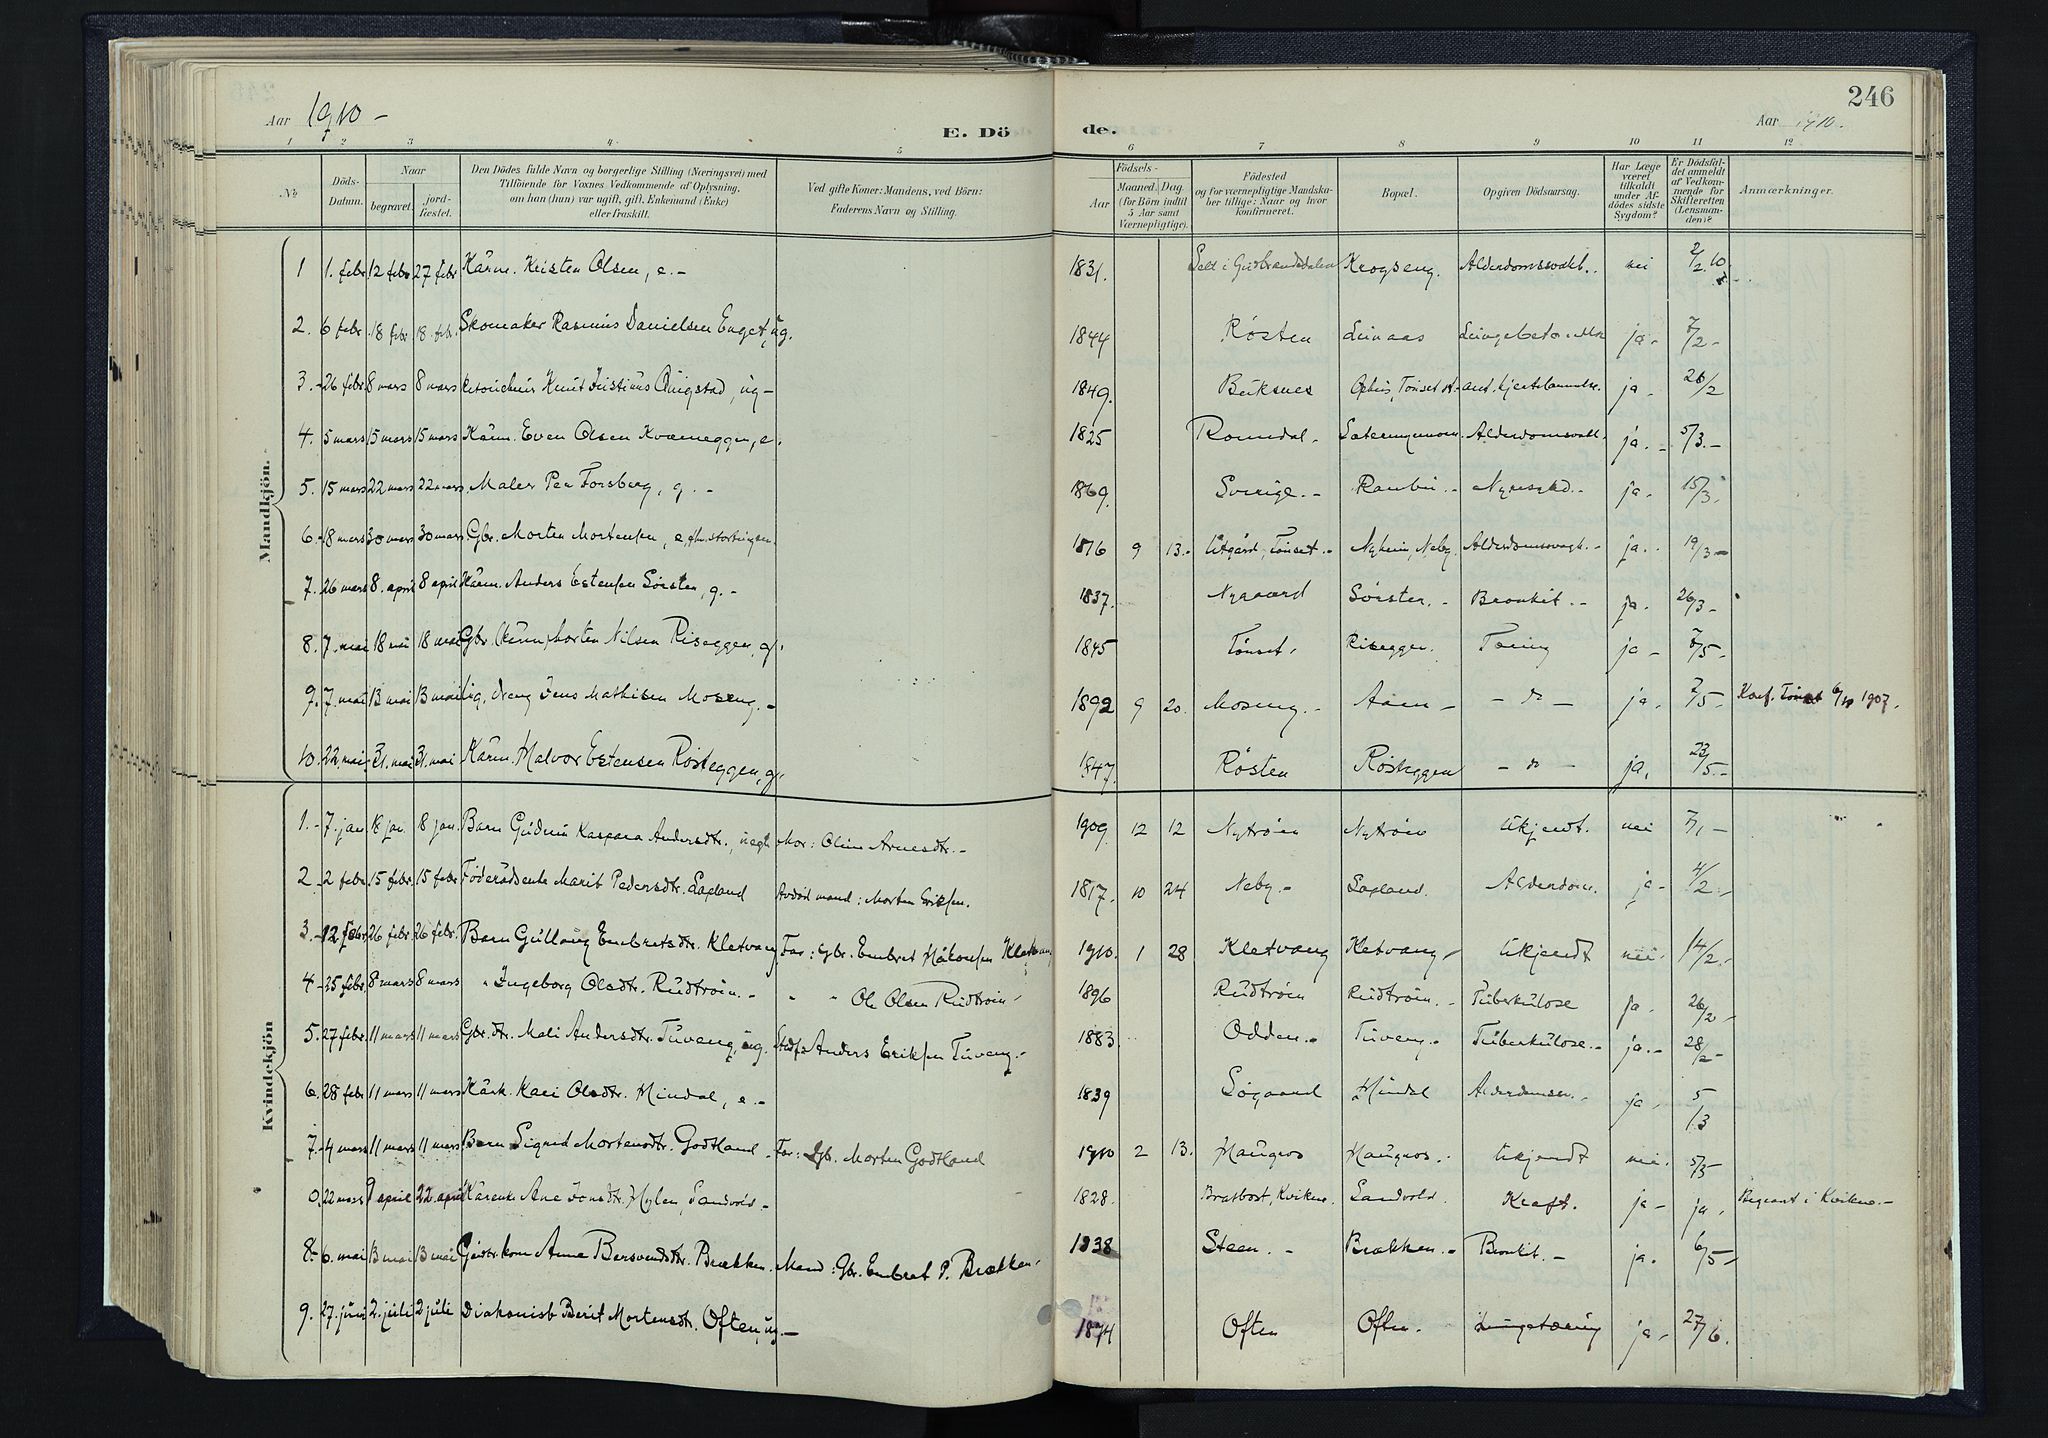 246
Aar 1910 -
E. Dö de.
Aar 1910.
1 2 3 4. 5 6 7 8 9 10 11 12
No
Döds-Datum.
Naar
begravet.
jord-fæstet.
Den Dödes fulde Navn og borgerlige Stilling (Næringsvei) med
Tilföiende for Voxnes Vedkommende af Oplysning,
om han (hun) var ugift, gift, Enkemand (Enke)
eller fraskilt.
Ved gifte Koner: Mandens, ved Börn:
Faderens Navn og Stilling.
Födsels-
Aar
Maaned. Dag
(for Börn indtil
5 Aar samt
Værnepligtige).
Födested
og for værnepligtige Mandska-
ber tillige: Naar og hvor
konfirmeret.
Bopæl.
Opgiven Dödsaarsag.
Har Læge
været
tilkaldt
under Af-
dödes sidste
Sygdom?
Er Dödsfal-
det anmeldt
af Vedkom-
mende for
Skifteretten
(Lensman-
den)?
Anmærkninger.
Mandkjön.
1 1. febr 12 febr 27 febr Kårm. Kristen Olsen, e. - 1831. Sell i Gudbrandsdalen Krogseng. Alderdomssvakh. nei 2/2 10
2. 6 febr. 18 febr. 18. febr. Skomaker Rasmus Danielsen Enget, ug. 1844 Røsten Leinaas ja - 7/2 -
3. - 26 febr. 8 mars 8 mars Knut Justinus Quigstad, ug - 1849. Buksnes ja - 26/2
4. 5 mars 15 mars 15 mars Kårm. Even Olsen Kværneggen, e. 1825 Romedal - Alderdomssvakh. ja. - 5/3. -
5. 15 mars 22 mars 22 mars. Maler Per Forsberg, g. - 1869. Sverige. - ja. 15/3.
6. - 18 mars 30 mars 30 mars. Gbr. Morten Mortensen, e, 1816 9 13. - Utgård, Tønset. - Nyheim, Neby. ja. - 19/3 -
7. 26 mars 8. april 8 april Kårm. Anders Estensen Sørsten, g. - 1837. Nygaard Sørsten. - Bronkit. - ja. 26/3 -
8. 7. mai 18 mai 18 mai Gbr. Morten Nilsen Riseggen, g. 1845 Tønset. Riseggen. Tæring ja - 7/5 -
9. 7. mai 13 mai 13 mai Ug. dreng Jens Mathisen Moseng. - 1892 9 20. Moseng. - Aaen - - do - ja - 7/5 - Konf. Tønset 6/10 1907.
10. 22. mai. 31. mai 31. mai Kårm. Halvor Estensen Røsteggen, g. 1847. Røsten Røsteggen - do - ja. 23/5. -
Kvindekjön
1. - 7. jan 18 jan. 8 jan. Barn Gudrun Kaspara Andersdtr., uegte Mor: Oline Arnesdtr. - 1909 12 12 Nytrøen Nytrøen Ukjendt. nei 7/1 -
2. - 2 febr. 15 febr. 15 febr. Føderådsenke Marit Pedersdtr. Lagland Avdød mand: Morten Eriksen. 1817. 10 24 Neby - Lagland. Alderdom. ja - 4/2. -
3. - 12 febr. 26 febr. 26 febr. Barn Gullaug Embretsdtr. Kletvang Far: Gbr. Embret Håkonsen Kletvang 1910. 1 28 Kletvang Kletvang - Ukjendt nei. 14/2. -
4 - 25 febr. 8 mars 8 mars " Ingeborg Olsdtr. Rudtrøen. - " " Ole Olsen Rudtrøen - 1896 Rudtrøen Rudtrøen. - Tuberkulose ja. 26/2 -
5. 27 febr. 11 mars 11 mars Gbr. dtr. Mali Andersdtr. Tuveng, ug. Stedf. Anders Eriksen Tuveng. - 1883. Odden. - Tuveng. - Tuberkulose. - ja. - 28/2 -
6. 28 febr 11 mars 11 mars Kårk. Kari Olsdtr. Hindal, e. - 1839 Søgaard Hindal ja - 5/13
7. - 4 mars 11 mars 11 mars Barn Sigrid Mortensdtr. Godtland. Far: Gb. Morten Godtland 1910 2 13. Haugmos Haugmos. - Ukjendt nei. 5/3 -
0. 22 mars 9 april 22. april Kårenke Ane Jonsdtr. Hylen, Sandvold. - 1828. Kvikne. Sandvold. Kræft. ja - ja, Begravet i Kvikne. -
8. - 6. mai 13 mai 13 mai Anne Bersvendsdtr. Brækken. Mand: Gbr. Embret P. Brækken. 1838 Steen. - Brækken. - Bronkit. - ja. 6/5 -
9. 27. juni 2. juli 2 juli Diakonisse Berit Mortensdtr. Often, ug. - 1874 Often Often. Lungetæring ja - 27/6.